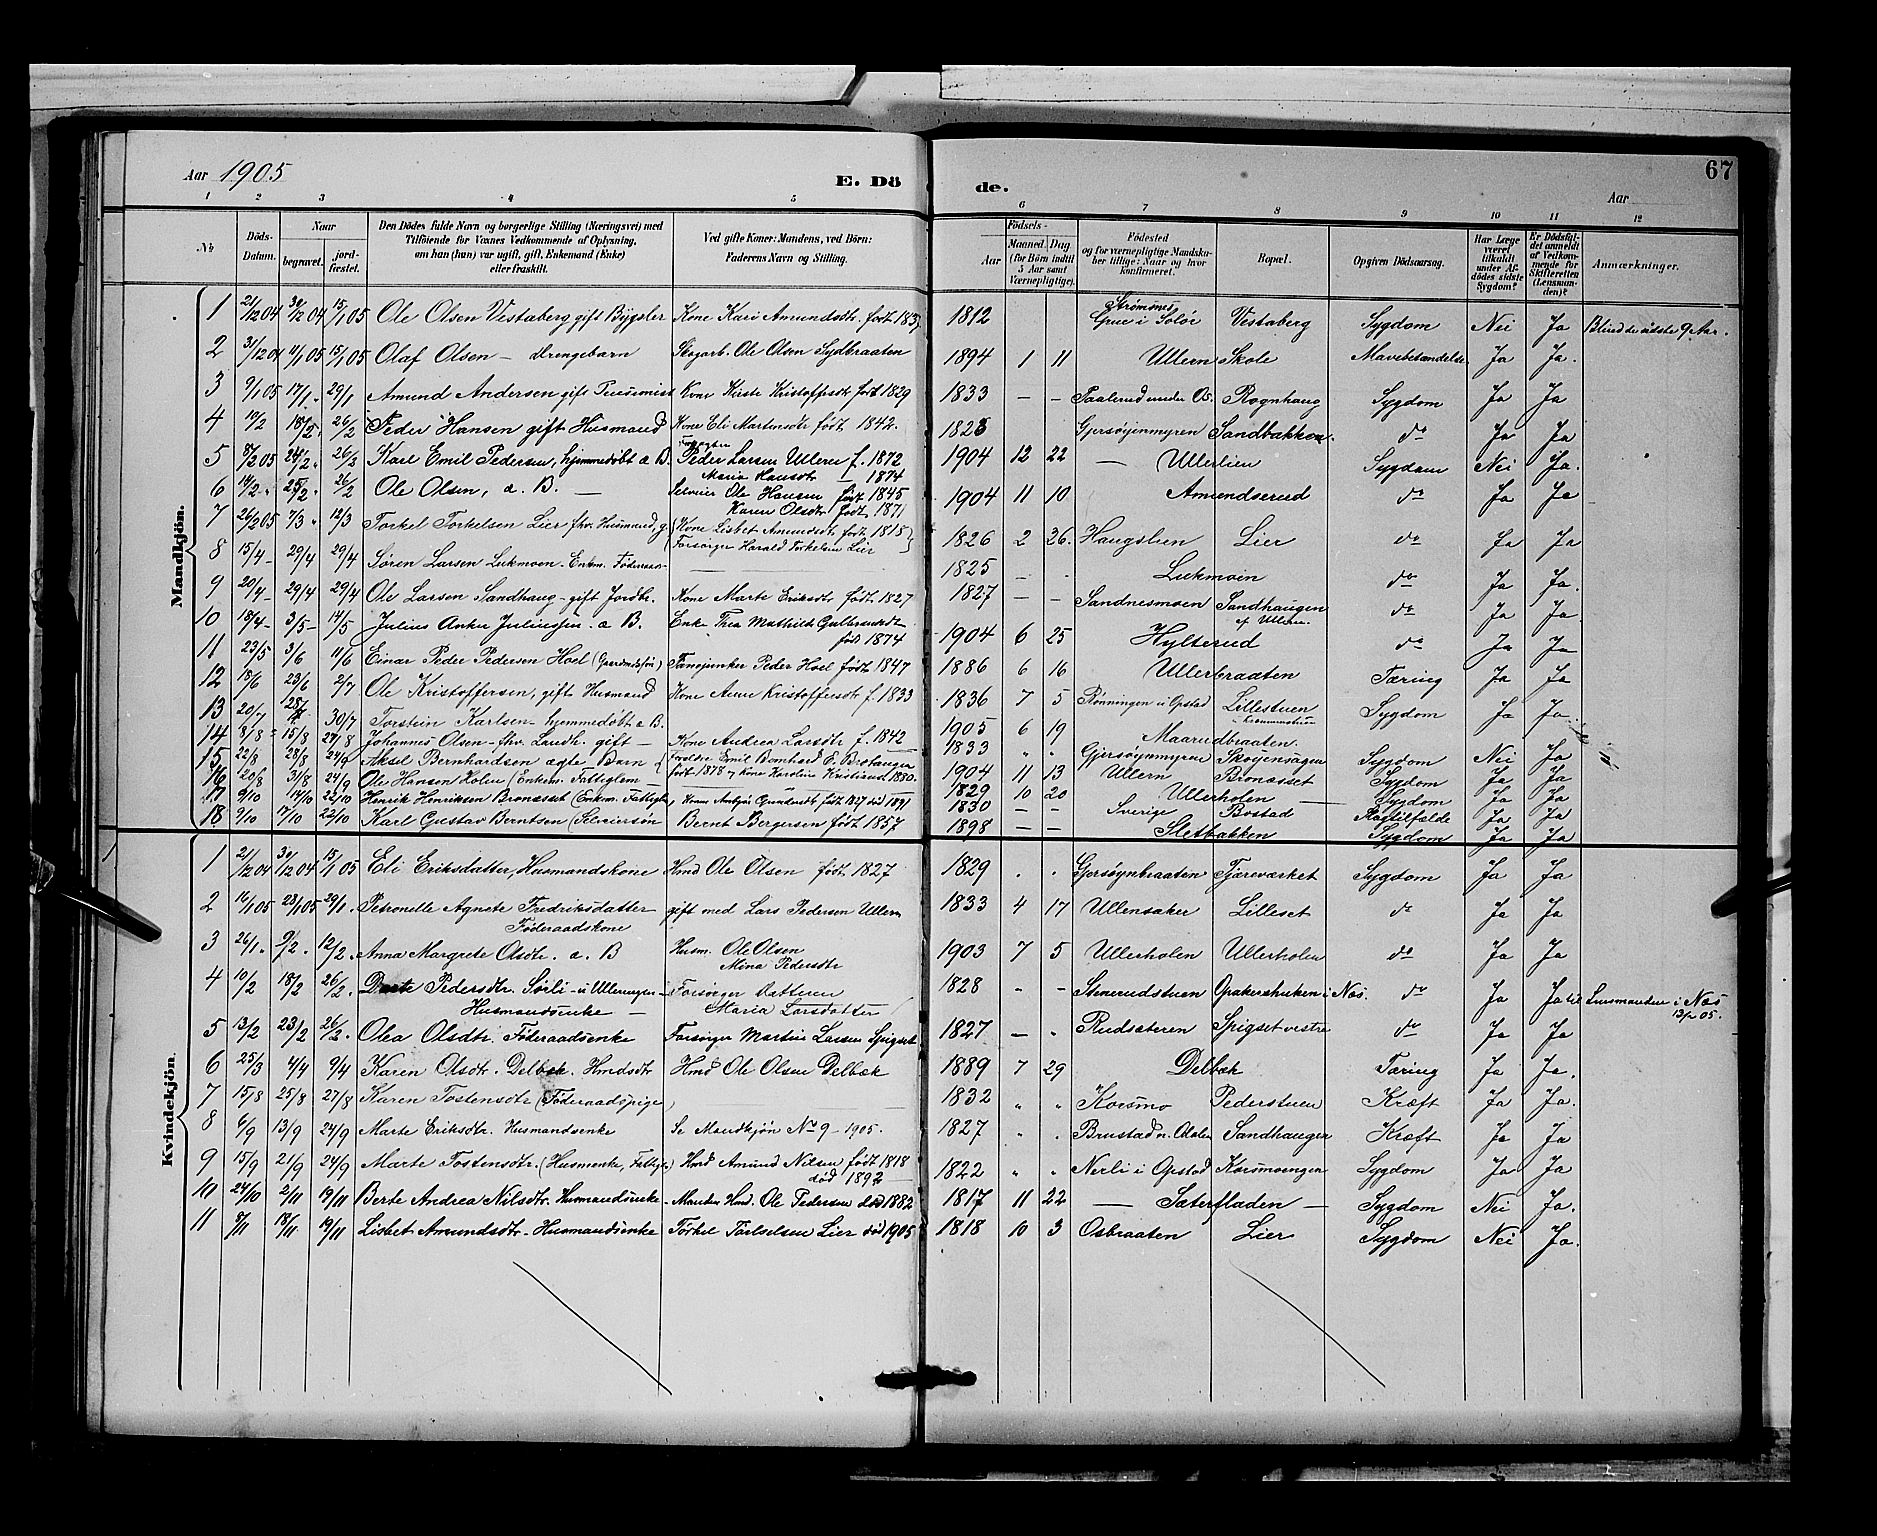 Aar 1905
E. Dö
de.
67
Aar
1 2 3 4 5
6 7 8 9 10 11 12
№
Döds-Datum.
Naar
begravet.
jord-fæstet.
Den Dödes fulde Navn og borgerlige Stilling (Næringsvei) med
Tilföiende for Voxnes Vedkommende af Oplysning,
om han (hun) var ugift, gift, Enkemand (Enke)
eller fraskilt.
Ved gifte Koner: Mandens, ved Börn:
Faderens Navn og Stilling.
Födsels-
Aar
Maaned. Dag
(for Börn indtil 5 Aar samt Værnepligtige).
Födested
og for værnepligtige Mandskaber tillige: Naar og hvor konfirmeret.
Bopæl.
Opgiven Dödsaarsag.
Har Læge været tilkaldt under Afdödes sidste Sygdom?
Er Dödsfaldet anmeldt af Vedkommende for Skifteretten (Lensmanden)?
Anmærkninger.
Mandkjön.
1 21/12 04 30/12 04 15/1 05 Ole Olsen Vestaberg gift Bygsler Kone Kari Amundsdtr. født 1812 Strømsnes Grue i Solør Vestaberg Sygdom Nei Ja Blind de sidste 9 Aar.
2 31/12 04 11/1 05 15/1 05 Olaf Olsen – drengebarn Skogarb. Ole Olsen Sydbraaten 1894 1 11 Ullern Skole Ja Ja.
3 9/1 05 17/1 „ 29/1 Amund Andersen gift Pensionist Kone Kirste Kristoffersdtr født 1829 1833 – – Paalerud under Os. Rognhaug Sygdom Ja Ja
4 10/2 18/2 „ 26/2 Peder Hansen gift Husmand Kone Eli Martensdtr født 1842. 1828 Gjersøyenmyren Sandbakken. do Ja Ja
5 8/2 05 24/2 „ 26/3 Karl Emil Pedersen, hjemmedøbt a. B. Peder Larsen Ulleren f. 1872 1904 12 22 – Ullerlien Sygdom Nei Ja.
Maria Hansdtr – 1874
6 14/2 „ 25/2 „ 26/2 Ole Olsen, a. B. – Selveier Ole Hansen født 1845 1904 11 10 Amundserud do Ja Ja
Karen Olsdtr født 1871
7 26/2 05 7/3 „ 12/3 Torkel Torkelsen Lier fhv. Husmand, g. (Kone Lisbet Amundsdtr født 1818) 1826 2 26. Haugslien Lier do Ja Ja
(Forsørger Harald Torkelsen Lier)
8 15/4 – 29/4 29/4 Søren Larsen Lukmoen – Enkm. Föderaad – 1825 – – Lukmoen do Ja Ja.
9 20/4 – 29/4 29/4 Ole Larsen Sandhaug – gift Jordbr. Kone Marte Eriksdtr født 1827 1827 – – Sandnesmoen Sandhaugen af Ullern do Ja Ja.
10 18/4 – 3/5 – 14/5 Julius Anker Juliussen. a B. Enke Thea Mathilde Gulbrandsdtr 1904 6 25 Hylterud do Ja Ja
født 1874
11 23/5 3/6 11/6 Einar Peder Pedersen Hoel Peder Hoel født 1847 1886 6 16 Ullerbraaten Tæring Ja Ja
12 18/6 23/6 2/7 Ole Kristoffersen, gift Husmand Kone Anne Kristoffersdtr f. 1833 1836 7 5 Rønningen i Opstad Lillestuen Sygdom Ja Ja.
13 20/7 28/7 30/7 Torstein Karlsen – hjemmedøbt a B. 1905 6 19 Maarudbraaten.
14 8/8 15/8 27/8 Johannes Olsen – fhv. Landh. gift – Kone Andrea Larsdtr f. 1842 1833 „ „ Gjersøyenmyren Skøyensagen Sygdom Nei Ja
15 22/8 28/8 24/9 Aksel Bernhardsen ægte Barn (Foreldre Emil Bernhard født 1878 og Kone Karoline 1880. 1904 11 13 Ullern Bronæsset Sygdom Ja Ja
16 20/8 3/8 24/9 Ole Hansen Holen (Enkem. Fattiglem – 1829 10 20 Ullerholen – Sygdom Ja Ja
17 9/10 14/10 22/10 Henrik Henriksen Bronæsset (Enkm. Fattiglem) Kone født 1827 død 1891 1830 – – Sverige Bostad Ja Ja
18 9/10 17/10 22/10 Karl Gustav Berntsen (Selveiersøn Bernt Bergersen født 1857 1898 – – Sletbakken Sygdom Ja Ja
Kvindekjön
1 21/12 04 30/12 04 15/1 05 Eli Eriksdatter, Husmandskone Hmd Ole Olsen født 1827 1829 „ „ Gjersøynbraaten Tjæreværket Sygdom Ja Ja
2 16/1 05 23/1 05 29/1. Petronelle Agnete Fredriksdatter gift med Lars Pedersen Ullern 1833 4 17 Ullensaker Lilleset do Ja Ja
Föderaadskone
3 26/1. 9/2 12/2. Anna Margrete Olsdtr. a. B Husm. Ole Olsen 1903 7 5 Ullerholen Ullerholen do Ja Ja
Mina Pedersdtr
4 10/2 18/2 26/2. Dorte Pedersdtr. Sørli – i Ullerengen – Forsørger Datteren 1828 – – Stenerudstuen Opakerehuken i Næs. do Ja Ja til Lensmanden i Næs 13/2 05.
Husmandsenke – Maria Larsdatter
5 13/2 23/2 26/2. Olea Olsdtr. Föderaadsenke Forsørger Martin Larsen Spigset 1827 – „ Rudsæteren Spigset vestre do Ja Ja
6 25/3 4/4 9/4 Karen Olsdtr. Delbæk. Hmdsdtr Hmd Ole Olsen Delbæk 1889 7 29 Delbæk Tæring Ja Ja.
7 15/8 25/8 27/8 Karen Tostensdtr (Föderaadspige) 1832 „ „ Korsmo Pederstuen Kræft Ja Ja.
8 6/9 13/9 24/9 Marte Eriksdtr. Husmandsenke Se Mandkjøn No 9 – 1905. 1827 „ „ Brustad n. Sandhaugen Kræft Ja Ja
9 15/9 21/9 24/9 Marte Tostensdtr. (Husmenke, Fattigl.) Hmd Amund Nilsen født 1818 1822 „ „ Nerli i Opstad Korsmoengen Sygdom Ja Ja
død 1892
10 24/10 2/11 19/11 Berte Andrea Nilsdtr. Husmandsenke – Manden Hmd. Ole Pedersen død 1882 1817 11 22 – Sæterfladen – Sygdom Nei Ja.
11 8/11 18/11 19/11 Lisbet Amundsdtr – Husmandsenke Torkel Torkelsen Lier død 1905 1818 10 3 Osbraaten Lier Sygdom Nei Ja.